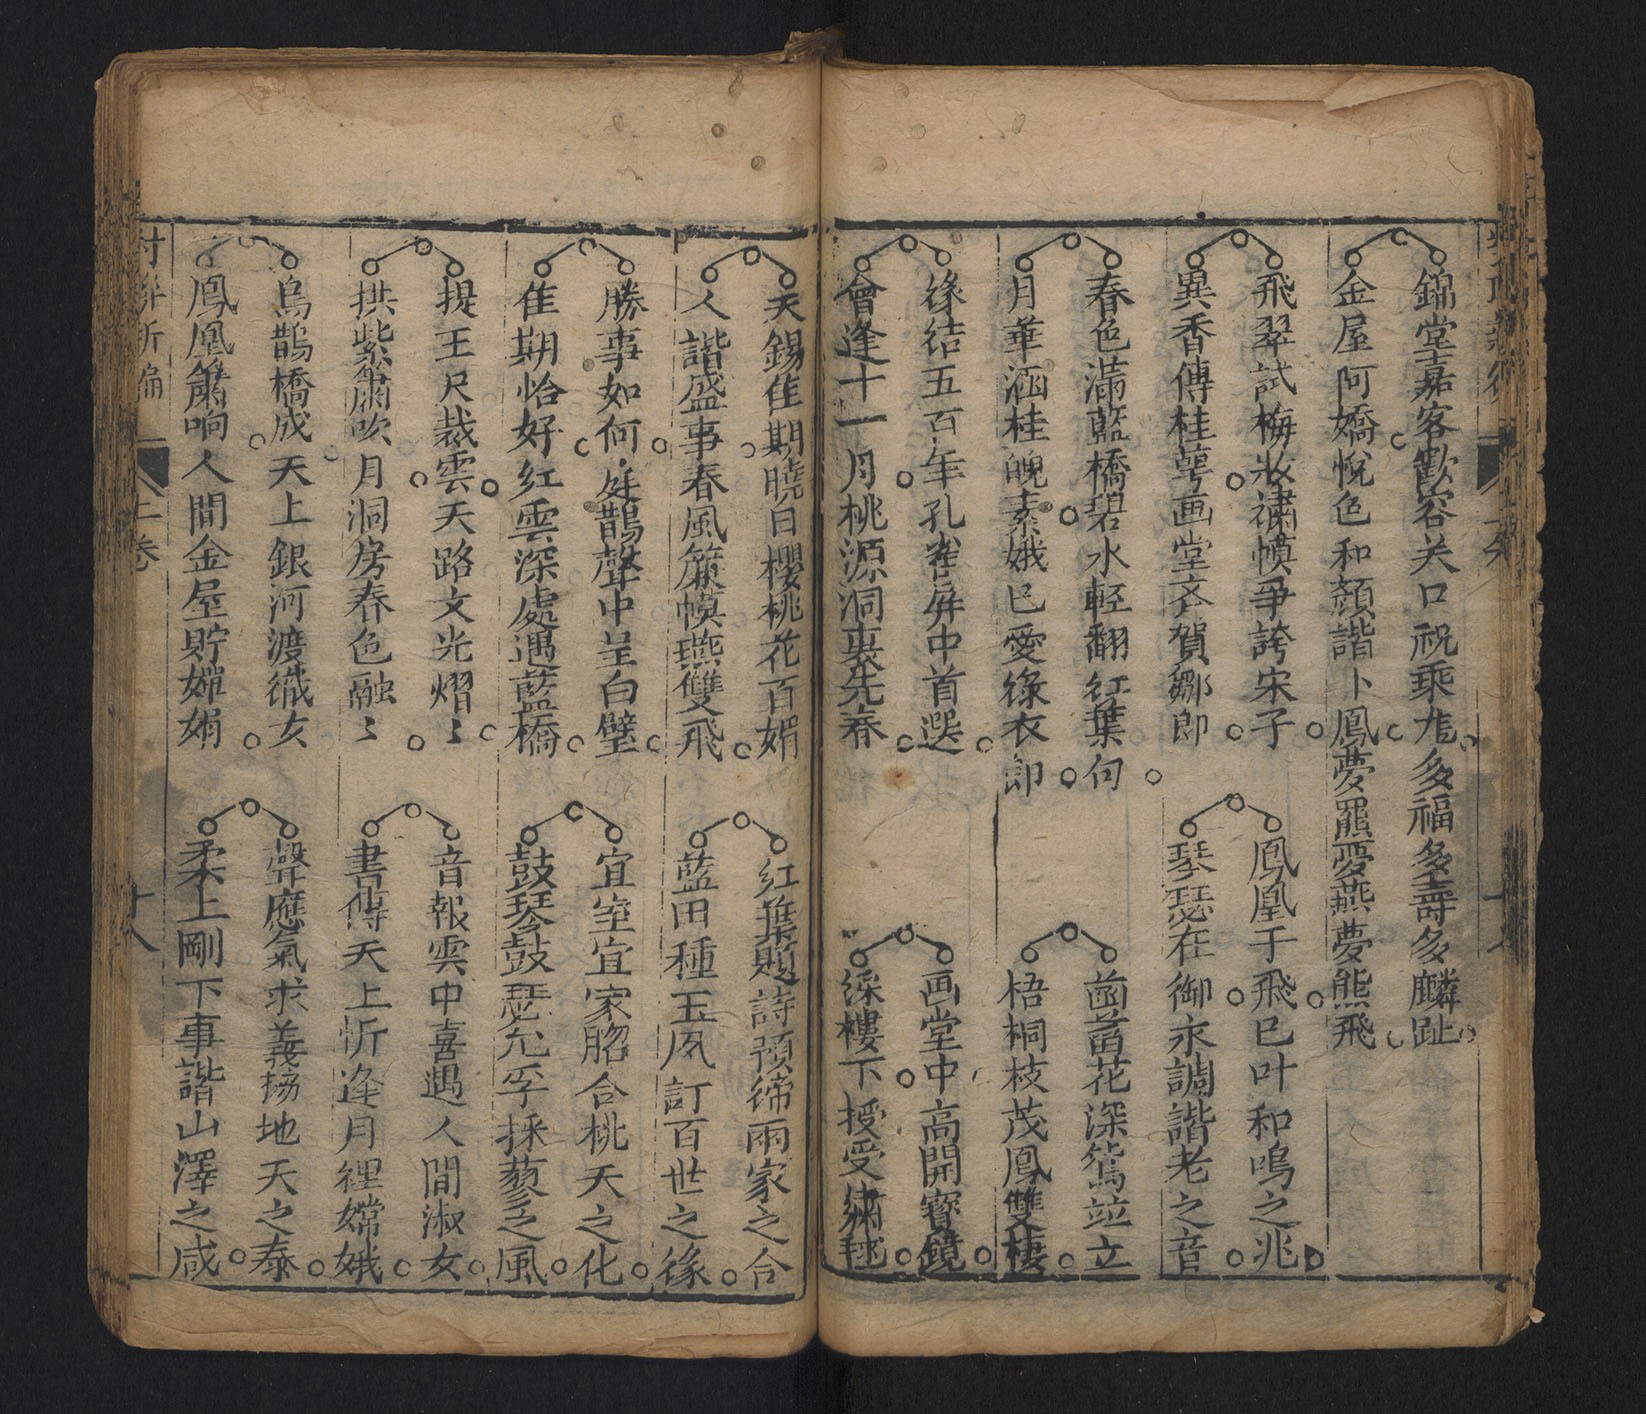 錦堂嘉客歡容关口祝乘龙多福多壽多麟趾
金屋阿嬌悅色和顏諧卜鳳夢羆夢燕夢熊飛
飛翠試梅妝繡幙爭誇宋子
異香傳桂萼画堂斉賀鄒郎
鳳凰于飛已叶和鳴之兆
琴瑟在御永調諧老之音
春色滿藍橋碧水輕翻红葉句
月華涵桂魄素娥已愛綠衣郎
菡萏花深鴛竝立
梧桐枝茂鳳雙棲
緣结五百年孔雀屏中首選
會逢十一月桃源洞裏先春
画堂中高開寶鏡
綵樓下授受繍毬
天錫佳期曉日櫻桃花百媚
人諧盛事春風簾幙燕雙飛
红葉題詩預締兩家之合
藍田種玉夙訂百世之緣
勝事如何庭鵲聲中呈白璧
佳期恰好红雲深處遇藍橋
宜室宜家脗合桃夭之化
鼓琴鼓瑟允孚採蓼之風
提玉尺裁雲天路文光熠〻
拱紫簫吹月洞房春色融〻
音報雲中喜遇人間淑女
書傳天上忻逢月裡嫦娥
烏鵲橋成天上銀河渡織女
鳳凰簫响人間金屋貯嬋娟
聲應氣求義協地天之泰
柔上剛下事諧山澤之咸
对聯新編
上卷
十八